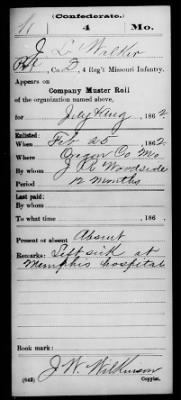 (Confederate.)
W 4 Mo.
J L Walker
Pvt, Co. F, 4 Reg't Missouri Infantry.
Appears on
Company Muster Roll
of the organization named above,
for July & Aug, 1862.
Enlisted:
When Feb 25, 1862.
Where Oregon Co Mo.
By whom J R Woodside
Period 12 Months
Last paid:
By whom
To what time , 186 .
Present or absent Absent
Remarks: Left sick at
Memphis Hospital
Book mark:
J. W. Wilkinson
(642) Copyist.